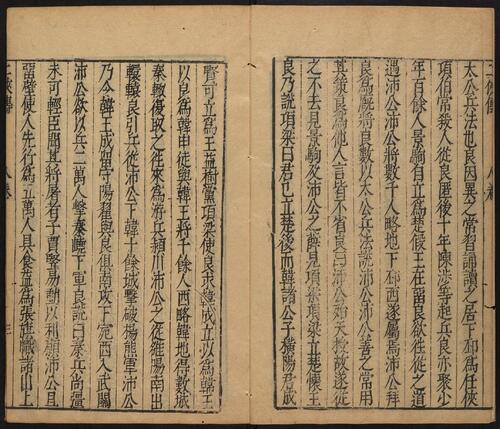 太公兵法也良因異之常習誦讀之居下邳爲任俠
項伯常殺人從良匿後十年陳涉等起兵良亦聚少
年百餘人景駒自立爲楚假王在留良欲往從之道
遇沛公沛公將數千人略地下邳西遂屬焉沛公拜
良爲廐將良數以太公兵法說沛公沛公善之常用
其策良爲他人言皆不省良曰沛公殆天授故遂從
之不去見景駒及沛公之薛見項梁項梁立楚懷王
良乃說項梁曰君已立楚後而韓諸公子橫陽君成
賢可立爲王益樹黨項梁使良求韓成立以爲韓王
以良爲韓申徒與韓王將千餘人西略韓地得數城
秦輙復取之往來爲游兵頴川沛公之從雒陽南出
轘轅良引兵從沛公下韓十餘城擊破楊熊軍沛公
乃令韓王成留守陽翟與良俱南攻下宛西入武關
沛公欲以兵二萬人擊秦嶢下軍良說曰秦兵尚彊
未可輕臣聞其將屠者子賈豎易動以利願沛公且
留壁使人先行爲五萬人具食益爲張旗幟諸山上
八卷
三